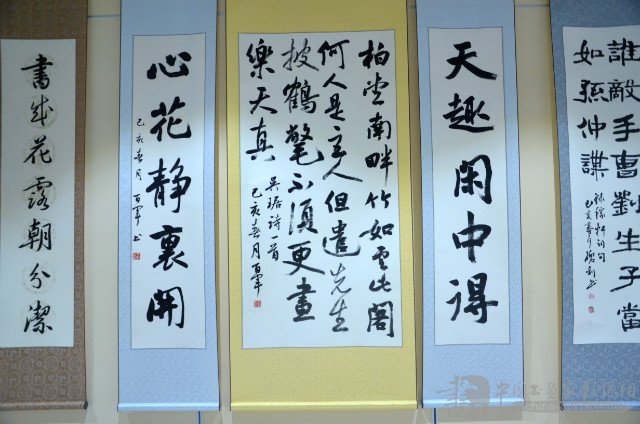 誰敵手曹劉生子當
如孫仲謀
天趣閑中得
柏堂南畔竹如雲此閣
何人是主人但遣先生
披鶴氅不須更畫
樂天真
吴琚詩一首
己亥春月百軍
心花静裏開
己亥春月
百軍书
書成花露朝分潔